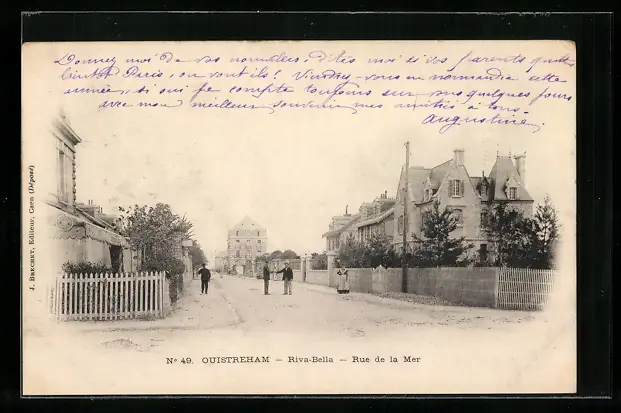 Donnez moi de vos nouvelles, dites moi si vos parents quittent
bientôt Paris, où vont ils ? Viendrez-vous en normandie cette
année, si oui je compte toujours sur vos quelques jours
avec mon meilleur souvenir mes amitiés à tous.
Augustine.
J. BRECHET, Editeur, Caen (Déposé)
N° 49. OUISTREHAM – Riva-Bella – Rue de la Mer